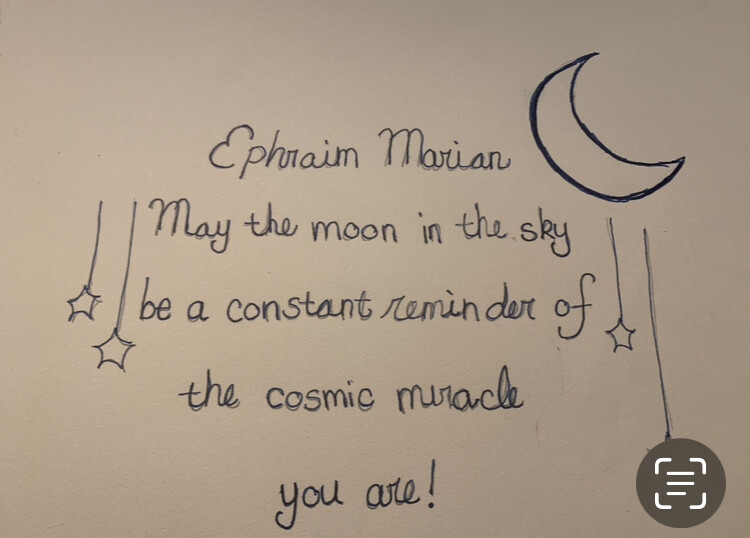 Ephraim Marian
May the moon in the sky
be a constant reminder of
the cosmic miracle
you are!